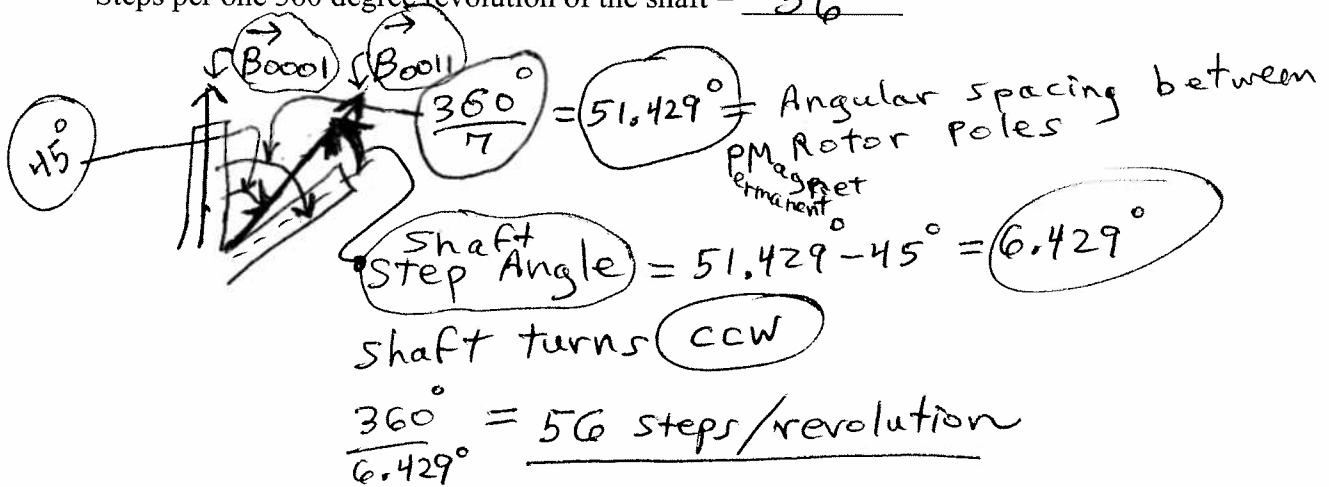 Steps per one 360 degree revolution of the shaft = 56
B0001 B0011
45° 360°/7 = 51.429° = Angular spacing between
PM Rotor Poles
Permanent Magnet
Shaft
Step Angle = 51.429° - 45° = 6.429°
shaft turns CCW
360°/6.429° = 56 steps/revolution